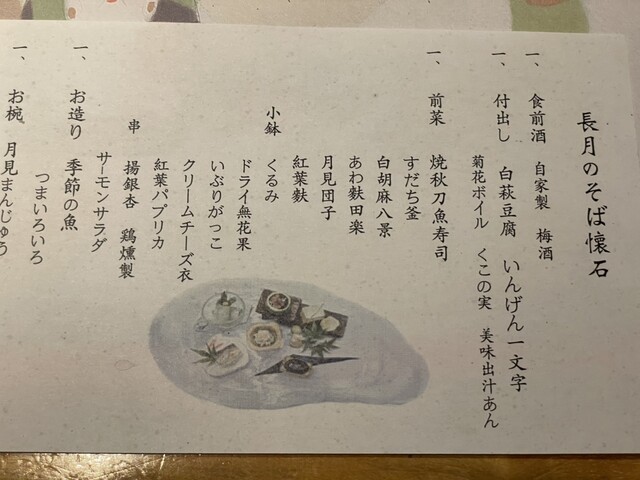 長月のそば懐石
一、食前酒　自家製　梅酒
一、付出し　白萩豆腐　いんげん一文字
菊花ボイル　くこの実　美味出汁あん
一、前菜　焼秋刀魚寿司
すだち釜
白胡麻八景
あわ麩田楽
月見団子
紅葉麩
小鉢　くるみ
ドライ無花果
いぶりがっこ
クリームチーズ衣
紅葉パプリカ
串　揚銀杏　鶏燻製
サーモンサラダ
一、お造り　季節の魚
つまいろいろ
一、お椀　月見まんじゅう